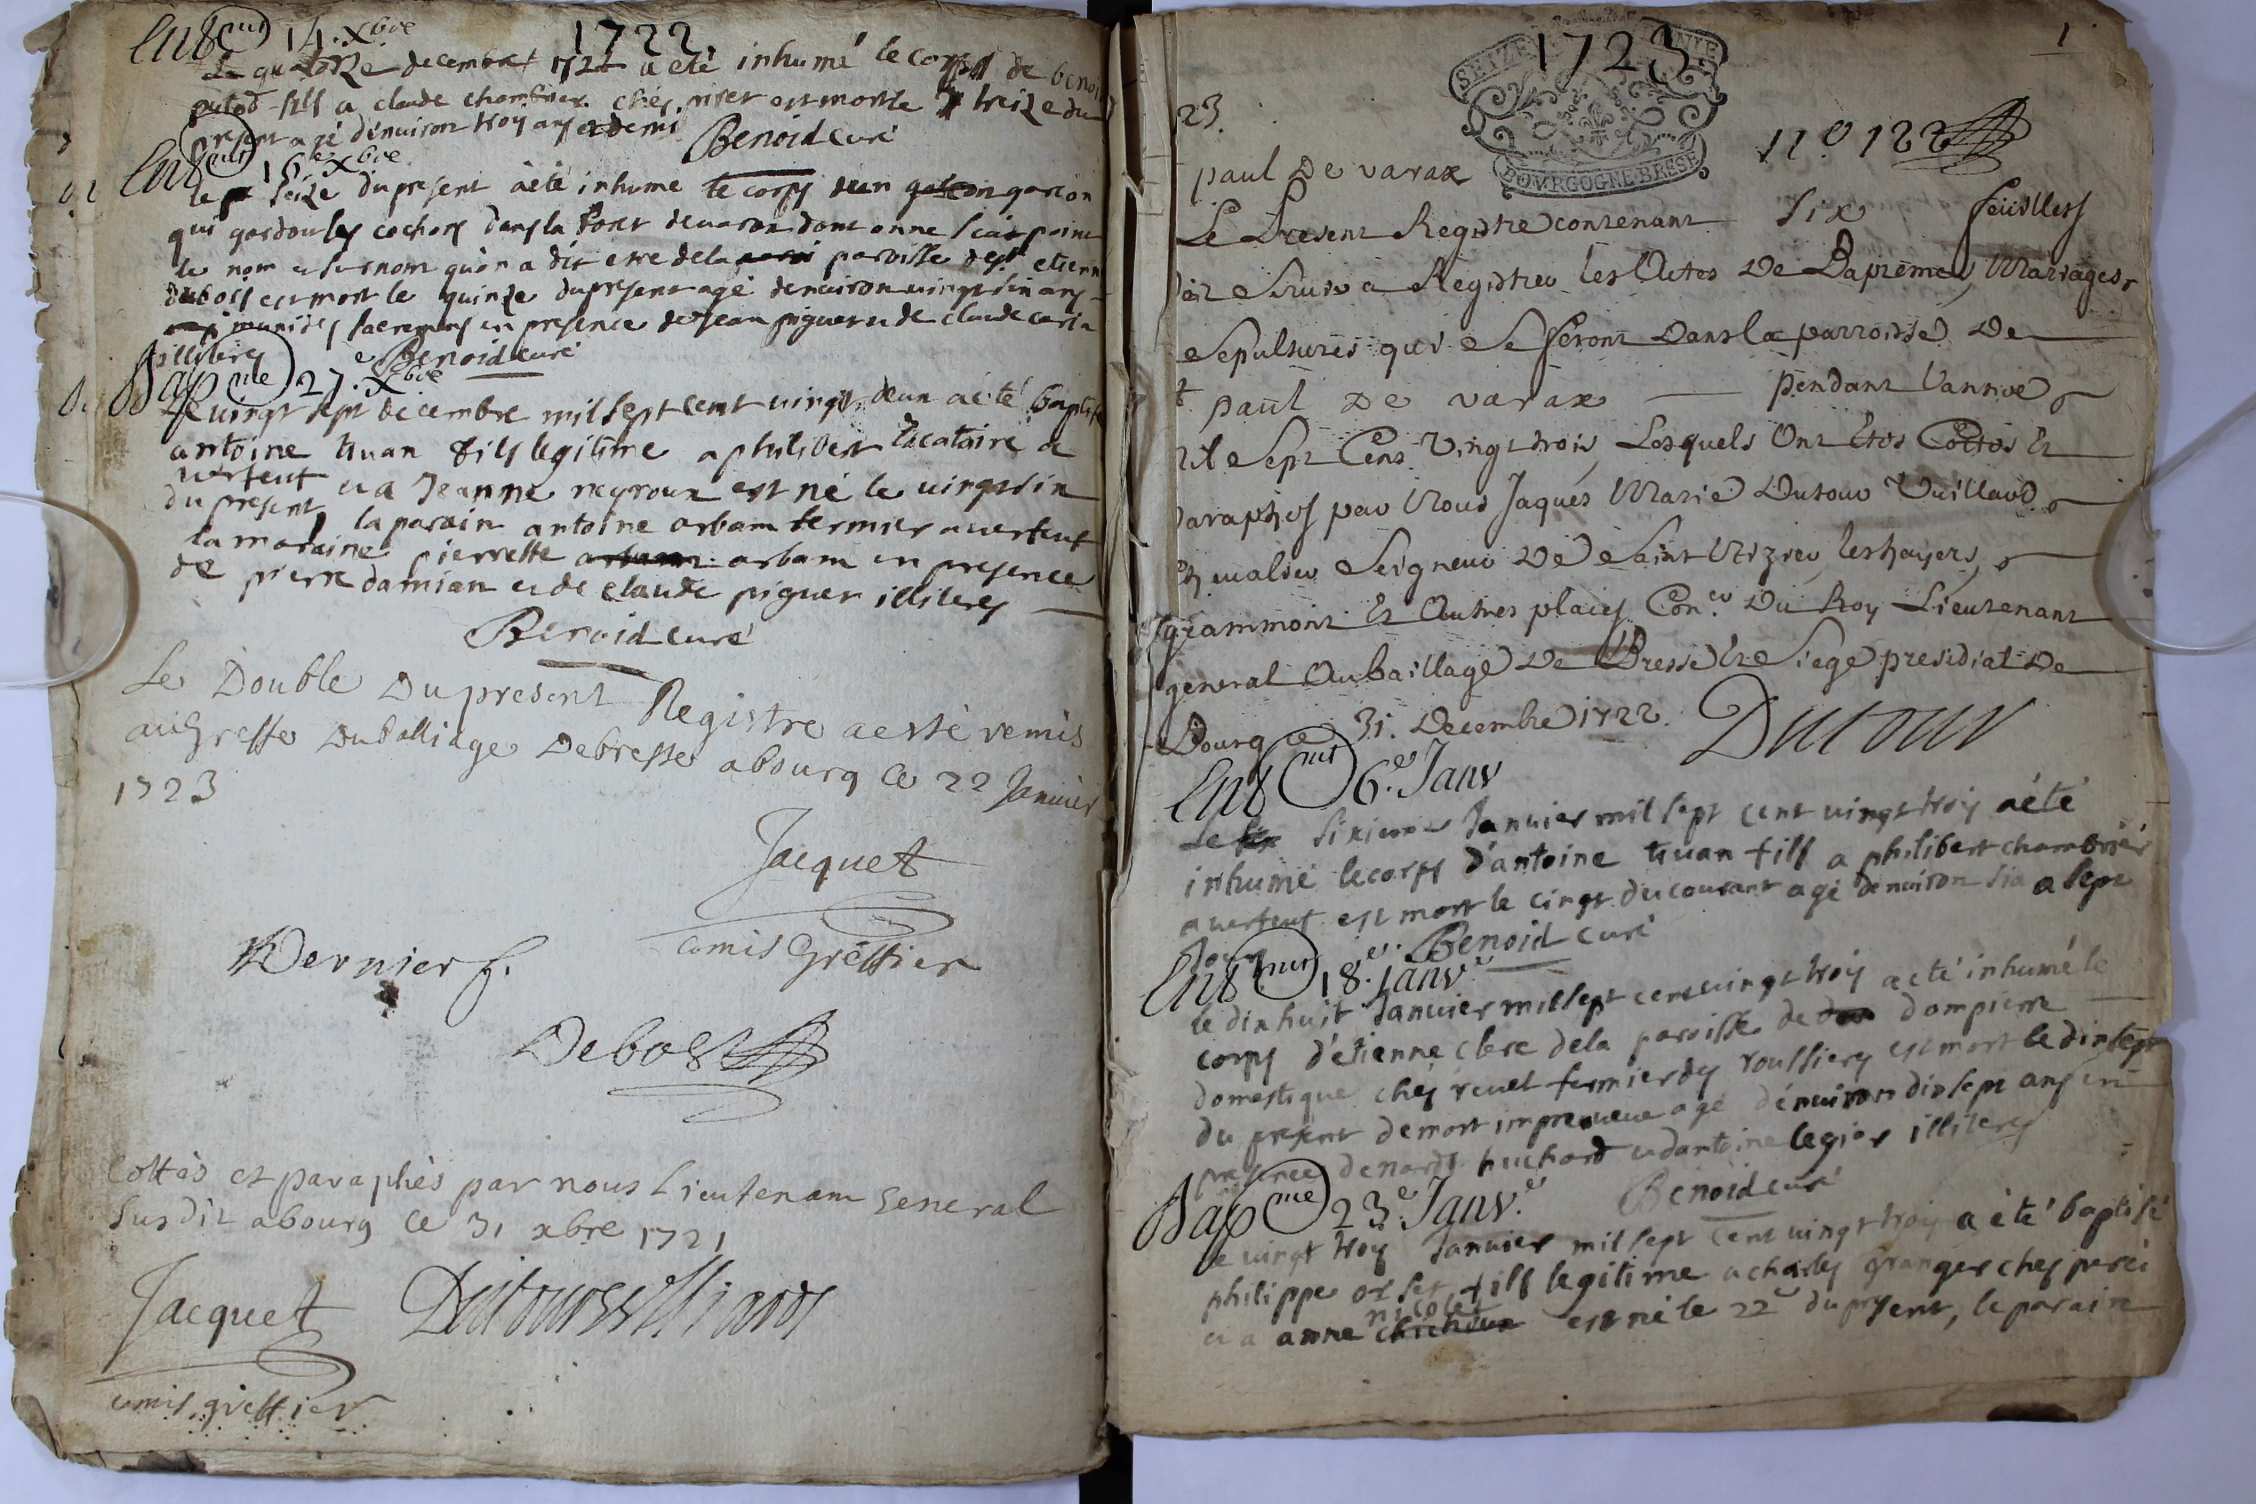 Ent.mt 14. Xbre
1722.
Le quatorze decembre 1722 a été inhumé le corps de benoit
putod fils a claude chambrier chés piset est mort le treize du
present agé d'enuiron troy ans et demi Benoid curé
Ent.mt 16e Xbre
le seize du present a été inhumé le corps d'un garcon
qui gardoit les cochons dans la foret de uaran dont on ne scait point
le nom et surnom qu'on a dit etre de la paroisse de st etienne
dubois est mort le quinze du present agé denuiron uingt sin ans
muni des sacremens en presence de jean piguet et de claude carla
illiterés Benoid curé
Bap.me 27. Xbre
Le uingt sept decembre mil sept cent uingt deux a été baptisé
antoine truan fils legitime a philibert locataire a
uerfeut et a Jeanne neyroux est né le uingt sin
du present, la parain antoine arbam fermier a uerfeut
la maraine pierrette arbam en presence
de pierre damian et de claude piguet illiterés
Benoid curé
Le Double Du present Registre a esté remis
au Greffe Du balliage De bresse a bourg le 22 Januier
1723
Jacquet
comis Greffier
Vernier
Debost
Cottés et paraphés par nous Lieutenant General
susdit a bourg ce 31 xbre 1721
Jacquet Dutour Vuillard
comis greffier
1
1723
SEIZE
BOVRGOGNE BRESSE
23.
n.o 122
paul De varax
Le Present Registre contenant six feüilles
Seruir a Registrer les Actes De Baptême, Mariages
Sepultures qui se feront Dans la parroisse De
t paul De varax pendant l'année
mil Sept Cens Vingt trois, Lesquels Ont Etés Cottés Et
paraphés par Nous Jaques Marie Dutour Vuillard
Cheualier Seigneur De Saint Nizier, les hayes,
grammont Et Autres places Con.er Du Roy Lieutenant
general Au baillage De Bresse Et Siege presidial De
Bourg ce 31. Decembre 1722. Dutour
Ent.mt 6.e Janv
Le sixieme Januier mil sept cent uingt troy a été
inhumé le corps d'antoine truan fils a philibert chambrier
a uerfeut est mort le cinqt du courant agé denuiron six a sept
Jours Benoid curé
Ent.mt 18.e Janv.e
le dixhuit Januier mil sept cent uingt troy a été inhumé le
corps d'etienne clerc de la paroisse de dompierre
domestique chés reuel fermier des roussieres est mort le dixsept
du present de mort impreueue agé d'enuiron dix sept ans en
presence de nardy huchard et dantoine legier illiterés
Benoid curé
Bap.me 23.e Janv.e
Le uingt troy Januier mil sept cent uingt troy a été baptisé
philippe orset fils legitime a charles granger chés perei
et a anne nicolet est né le 22e du present, le parain